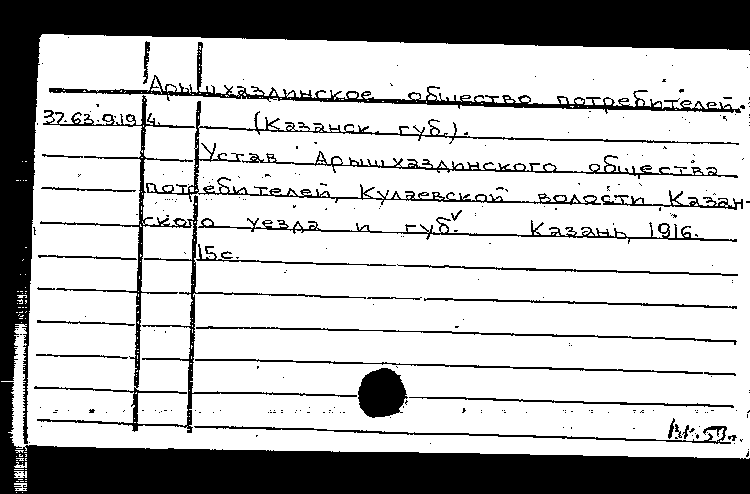 Арышхаздинское общество потребителей.
37.63.9.194. (Казанск. губ.).
Устав Арышхаздинского общества
потребителей, Кулаевской волости, Казан-
ского уезда и губ. Казань, 1916.
15с.